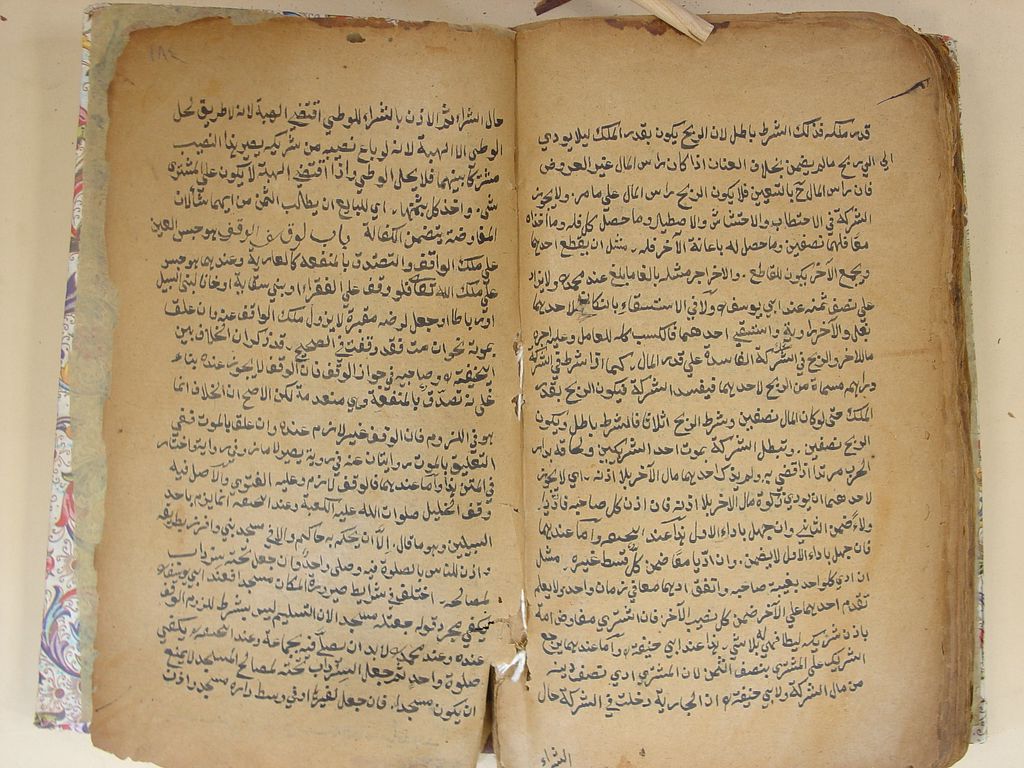 قدر ملكه فذلك الشرط باطل لان الربح يكون بقدر الملك ليلا يودي
الى الربح مالم يضمن بخلاف العنان اذا كان راس المال غير العروض
فان راس المال لا يتعين فلا يكون الربح راس المال على ما مر ولا يجوز
الشركة في الاحتطاب والاحتشاش والاصطياد وما حصل لكل فله وما اخذاه
معا فلهما نصفين وما حصل له باعانة الآخر فله مثل ان يقطع احدهما
ويجمع الآخر يكون للقاطع وللآخر اجر مثله بالغا ما بلغ عند محمد ولا يزاد
على نصف ثمنه عند ابي يوسف ولا في الاستسقاء بان كان لاحدهما
بغل وللآخر راوية واستقى احدهما فالكسب كله للعامل وعليه اجر
ما للآخر والربح في الشركة الفاسدة على قدر المال كما اذا شرط في الشركة
دراهم مسماة من الربح لاحدهما فيفسد الشركة فيكون الربح بقدر
الملك حتى لو كان المال نصفين وشرط الربح اثلاثا فالشرط باطل ويكون
الربح نصفين وتبطل الشركة بموت احد الشريكين ولحاقه بدار
الحرب مرتدا اذا قضي به ولم يزك احدهما مال الآخر بلا اذنه اي لا يجوز
لاحدهما ان يودي زكوة مال الآخر بلا اذنه فان اذن كل صاحبه فاديا
ولاء ضمن الثاني وان جهل باداء الاول هذا عند ابي حنيفة واما عندهما
فان جهل باداء الاول لا يضمن وان اديا معا ضمن كل قسط غيره مثل
ان ادى كل واحد بغيبة صاحبه واتفق اداؤهما معا في زمان واحد ولا يعلم
تقدم احدهما على الآخر ضمن كل نصيب الآخر فان اشترى مفاوض امة
باذن شريكه ليطا فهي له بلا شي هذا عند ابي حنيفة واما عندهما يرجع
الشريك على المشتري بنصف الثمن لان المشتري ادى نصف دينه
من مال الشركة ولابي حنيفة ان الجارية دخلت في الشركة حال
الشراء
١٨٤
حال الشراء ثم الاذن بالشراء للوطي اقتضى الهبة لانه لا طريق لحل
الوطي الا الهبة لانه لو باع نصيبه من شريكه يصير هذا النصيب
مشتركا بينهما فلا يحل الوطي واذا اقتضى الهبة لا يكون على المشتري
شيء واخذ كل بثمنها اي للبايع ان يطالب الثمن من ايهما شاء لان
المفاوضة يتضمن الكفالة باب الوقف هو حبس العين
على ملك الواقف والتصدق بالمنفعة كالعارية وعندهما هو حبس
على ملك الله تعالى فلو وقف على الفقراء او بنى سقاية او خانا لبني السبيل
او رباطا او جعل ارضه مقبرة لا يزول ملك الواقف عنه وان علق
بموته نحو ان مت فقد وقفت في الصحيح قد ذكر ان الخلاف بين
ابي حنيفة وصاحبيه في جواز الوقف فان الوقف لا يجوز عنده بناء
على انه تصدق بالمنفعة وهي منعدمة لكن الاصح ان الخلاف انما
هو في اللزوم فان الوقف غير لازم عنده وان علق بالموت ففي
التعليق بالموت روايتان عنه في رواية يصير لازما وفي رواية اختار
في المتن هذا واما عندهما فالوقف لازم وعليه الفتوى والاصل فيه
وقف الخليل صلوات الله عليه الكعبة وعند ابي حنيفة انما يلزم باحد
السبيلين وهو ما قال الا ان يحكم به حاكم والا في مسجد بني وافرز بطريقه
واذن للناس بالصلوة فيه وصلى واحد وان جعل تحته سرداب
لمصالحه اختلف في شرايط صيرورة المكان مسجدا فعند ابي يوسف
يكفي مجرد قوله جعلته مسجدا لان التسليم ليس بشرط للزوم الوقف
عنده وعند محمد لابد ان يصلى فيه بجماعة وعند ابي حنيفة يكفي
صلوة واحد ثم جعل السرداب تحته لمصالح المسجد لا يمنع
ان يكون مسجدا فان جعل لغيرها او في وسط داره مسجدا واذن